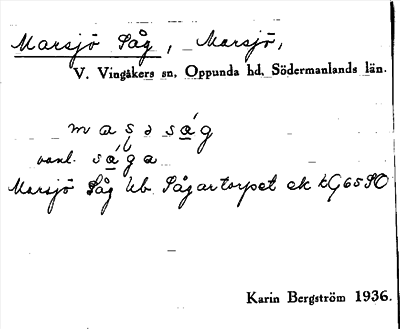 Marsjö Såg, Marsjö,
V. Vingåkers sn, Oppunda hd, Södermanlands län.
m a s ə s á g
vanl. s á g a
Marsjö Såg Ub. Sågartorpet ek kG65SO
Karin Bergström 1936.